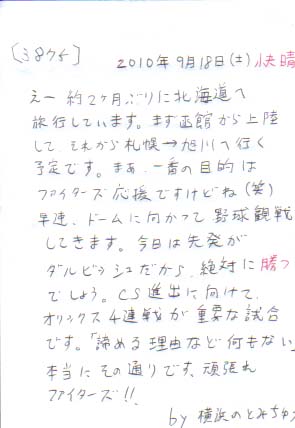 2010年9月18日(土) 快晴
えー 約2ヶ月ぶりに北海道へ
旅行しています。まず函館から上陸
して、それから札幌→旭川へ行く
予定です。まあ、一番の目的は
ファイターズ応援ですけどね(笑)
早速、ドームに向かって野球観戦
してきます。今日は先発が
ダルビッシュだから、絶対に勝つ
でしょう。CS進出に向けて、
オリックス4連戦が重要な試合
です。「諦める理由など何もない」
本当にその通りです、頑張れ
ファイターズ!!
by 横浜のとみちゅう